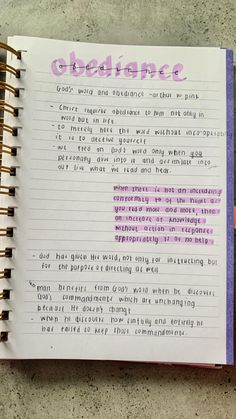 obediance
God's word and obediance - arthur w pink
- Christ requires obediance to him not only in
word but in life
- to merely hear the word without incorporating
it is to deceive yourself
- we feed on God's word only when you
personally dive into it and assimilate into
our live what we read and hear.
when there is not an increasing
conformity
you read more and more, then
an increase of knowledge
without action in response
appropriately is no help
- God has given His word, not only for instructing but
for the purpose of directing as well
man benefits from God's word when he discovers
God's commandments which are unchanging
because He doesn't change
- when he discovers how sinfully and entirely he
has failed to keep those commandments.